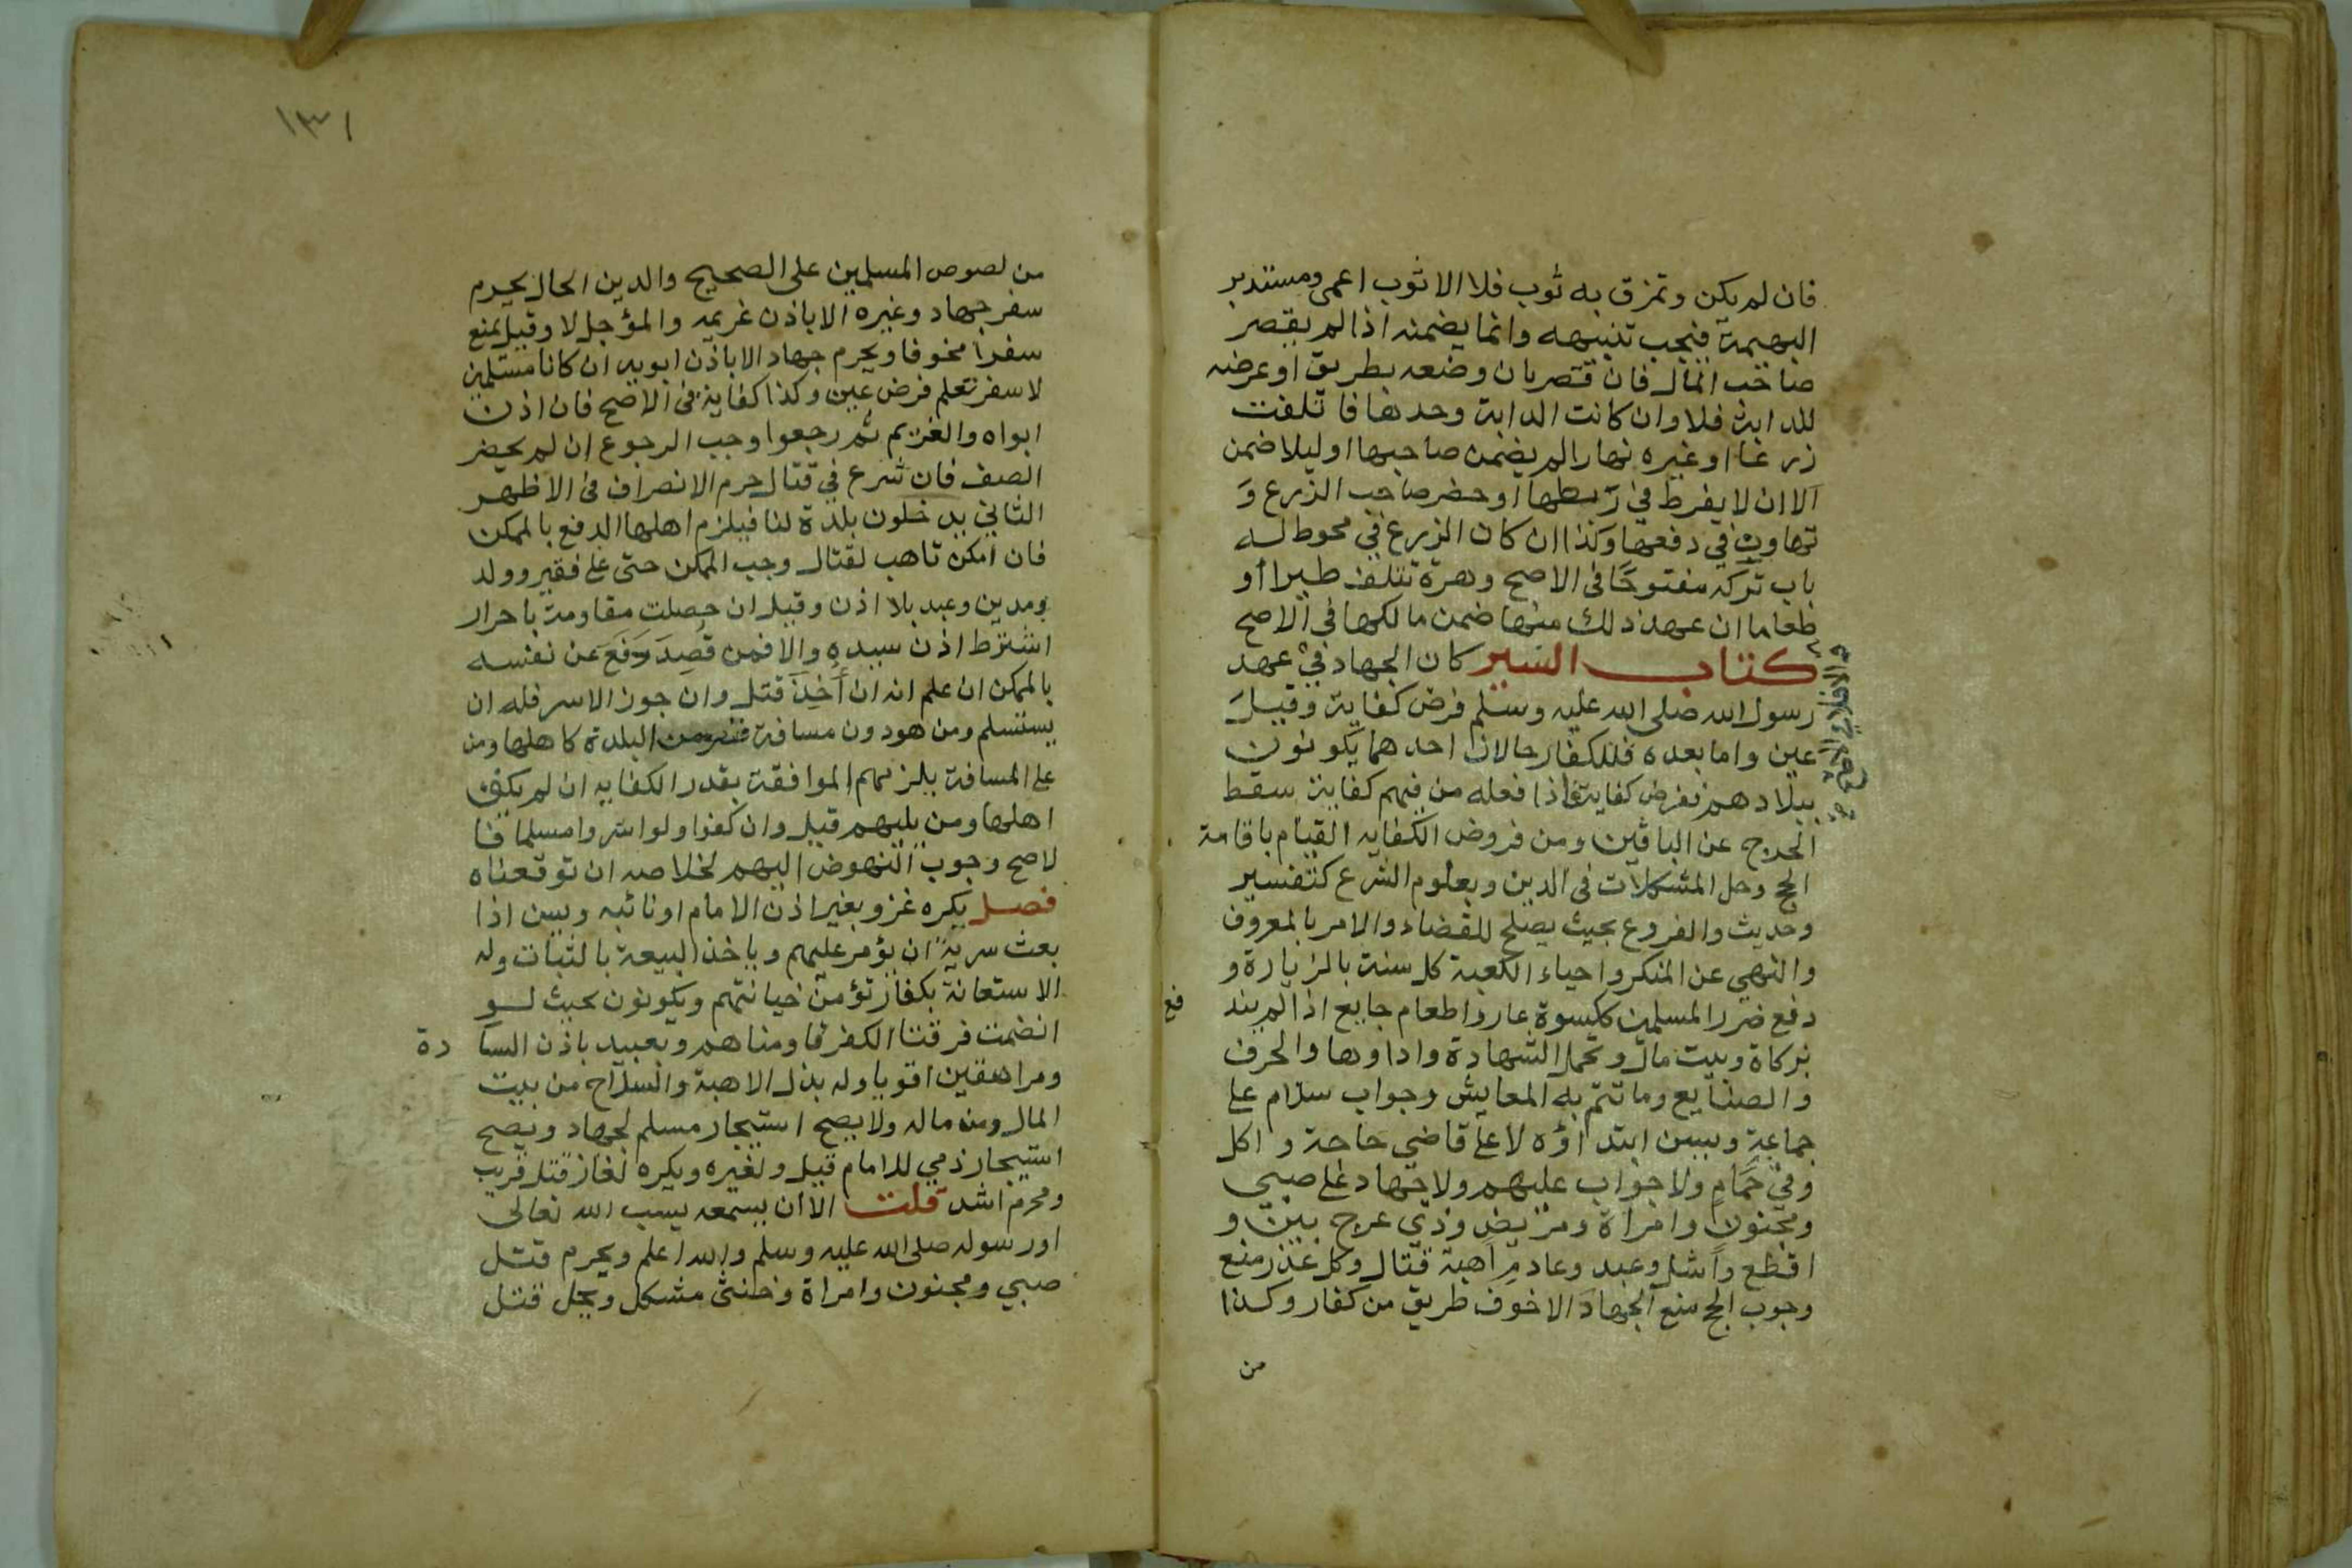 فان لم يكن وتمزق به ثوب فلا الا ثوب اعمى ومستدبر
البهيمة فيجب تنبيهه وانما يضمنه اذا لم يقصر
صاحب المال فان قصر بان وضعه بطريق او عرضه
للدابة فلا وان كانت الدابة وحدها فاتلفت
زرعا او غيره نهارا لم يضمن صاحبها او ليلا ضمن
الا ان لا يفرط في ربطها او حضر صاحب الزرع و
تهاون في دفعها وكذا ان كان الزرع في محوط له
باب تركه مفتوحا في الاصح وهرة تتلف طيرا او
طعاما ان عهد ذلك منها ضمن مالكها في الاصح
كتاب السير كان الجهاد في عهد
رسول الله صلى الله عليه وسلم فرض كفاية وقيل
عين واما بعده فللكفار حالان احدهما يكونون
ببلادهم ففرض كفاية فاذا فعله من فيهم كفاية سقط
الحرج عن الباقين ومن فروض الكفايه القيام باقامة
الحج وحل المشكلات في الدين وبعلوم الشرع كتفسير
وحديث والفروع بحيث يصلح للقضاء والامر بالمعروف
والنهي عن المنكر واحياء الكعبة كل سنة بالزيارة و
دفع ضرر المسلمين ككسوة عار واطعام جايع اذا لم يند فع
بزكاة وبيت مال وتحمل الشهادة واداوها والحرف
والصنايع وما تتم به المعايش وجواب سلام على
جماعة ويسن ابتداؤه لا على قاضي حاجة و اكل
وفي حمام ولا جواب عليهم ولا جهاد على صبي
ومجنون وامراة ومريض وذي عرج بين و
اقطع واشل وعبد وعادم اهبة قتال وكل عذر منع
وجوب الحج منع الجهاد الا خوف طريق من كفار وكذا
من
١٣١
من لصوص المسلمين على الصحيح والدين الحال يحرم
سفر جهاد وغيره الا باذن غريمه والمؤجل لا وقيل يمنع
سفرا مخوفا ويحرم جهاد الا باذن ابويه ان كانا مسلمين
لا سفر تعلم فرض عين وكذا كفاية في الاصح فان اذن
ابواه والغريم ثم رجعوا وجب الرجوع ان لم يحضر
الصف فان شرع في قتال حرم الانصراف في الاظهر
الثاني يدخلون بلدة لنا فيلزم اهلها الدفع بالممكن
فان امكن تاهب لقتال وجب الممكن حتى على فقير وولد
ومدين وعبد بلا اذن وقيل ان حصلت مقاومة باحرار
اشترط اذن سيده والا فمن قُصِدَ دَفَعَ عن نفسه
بالممكن ان علم انه ان أُخِذَ قتل وان جوز الاسر فله ان
يستسلم ومن هو دون مسافة قصر من البلدة كاهلها ومن
على المسافة يلزمهم الموافقة بقدر الكفايه ان لم يكف
اهلها ومن يليهم قيل وان كفوا ولو اسروا مسلما فا
لاصح وجوب النهوض اليهم لخلاصه ان توقعناه
فصل يكره غزو بغير اذن الامام او نائبه ويسن اذا
بعث سرية ان يؤمر عليهم وياخذ البيعة بالثبات وله
الاستعانة بكفار تؤمن خيانتهم ويكونون بحيث لو
انضمت فرقتا الكفر قاومناهم وبعبيد باذن السا دة
ومراهقين اقويا وله بذل الاهبة والسلاح من بيت
المال ومن ماله ولا يصح استيجار مسلم لجهاد ويصح
استيجار ذمي للامام قيل ولغيره ويكره لغاز قتل قريب
ومحرم اشد قلت الا ان يسمعه يسب الله تعالى
او رسوله صلى الله عليه وسلم والله اعلم ويحرم قتل
صبي ومجنون وامراة وخنثى مشكل ويحل قتل